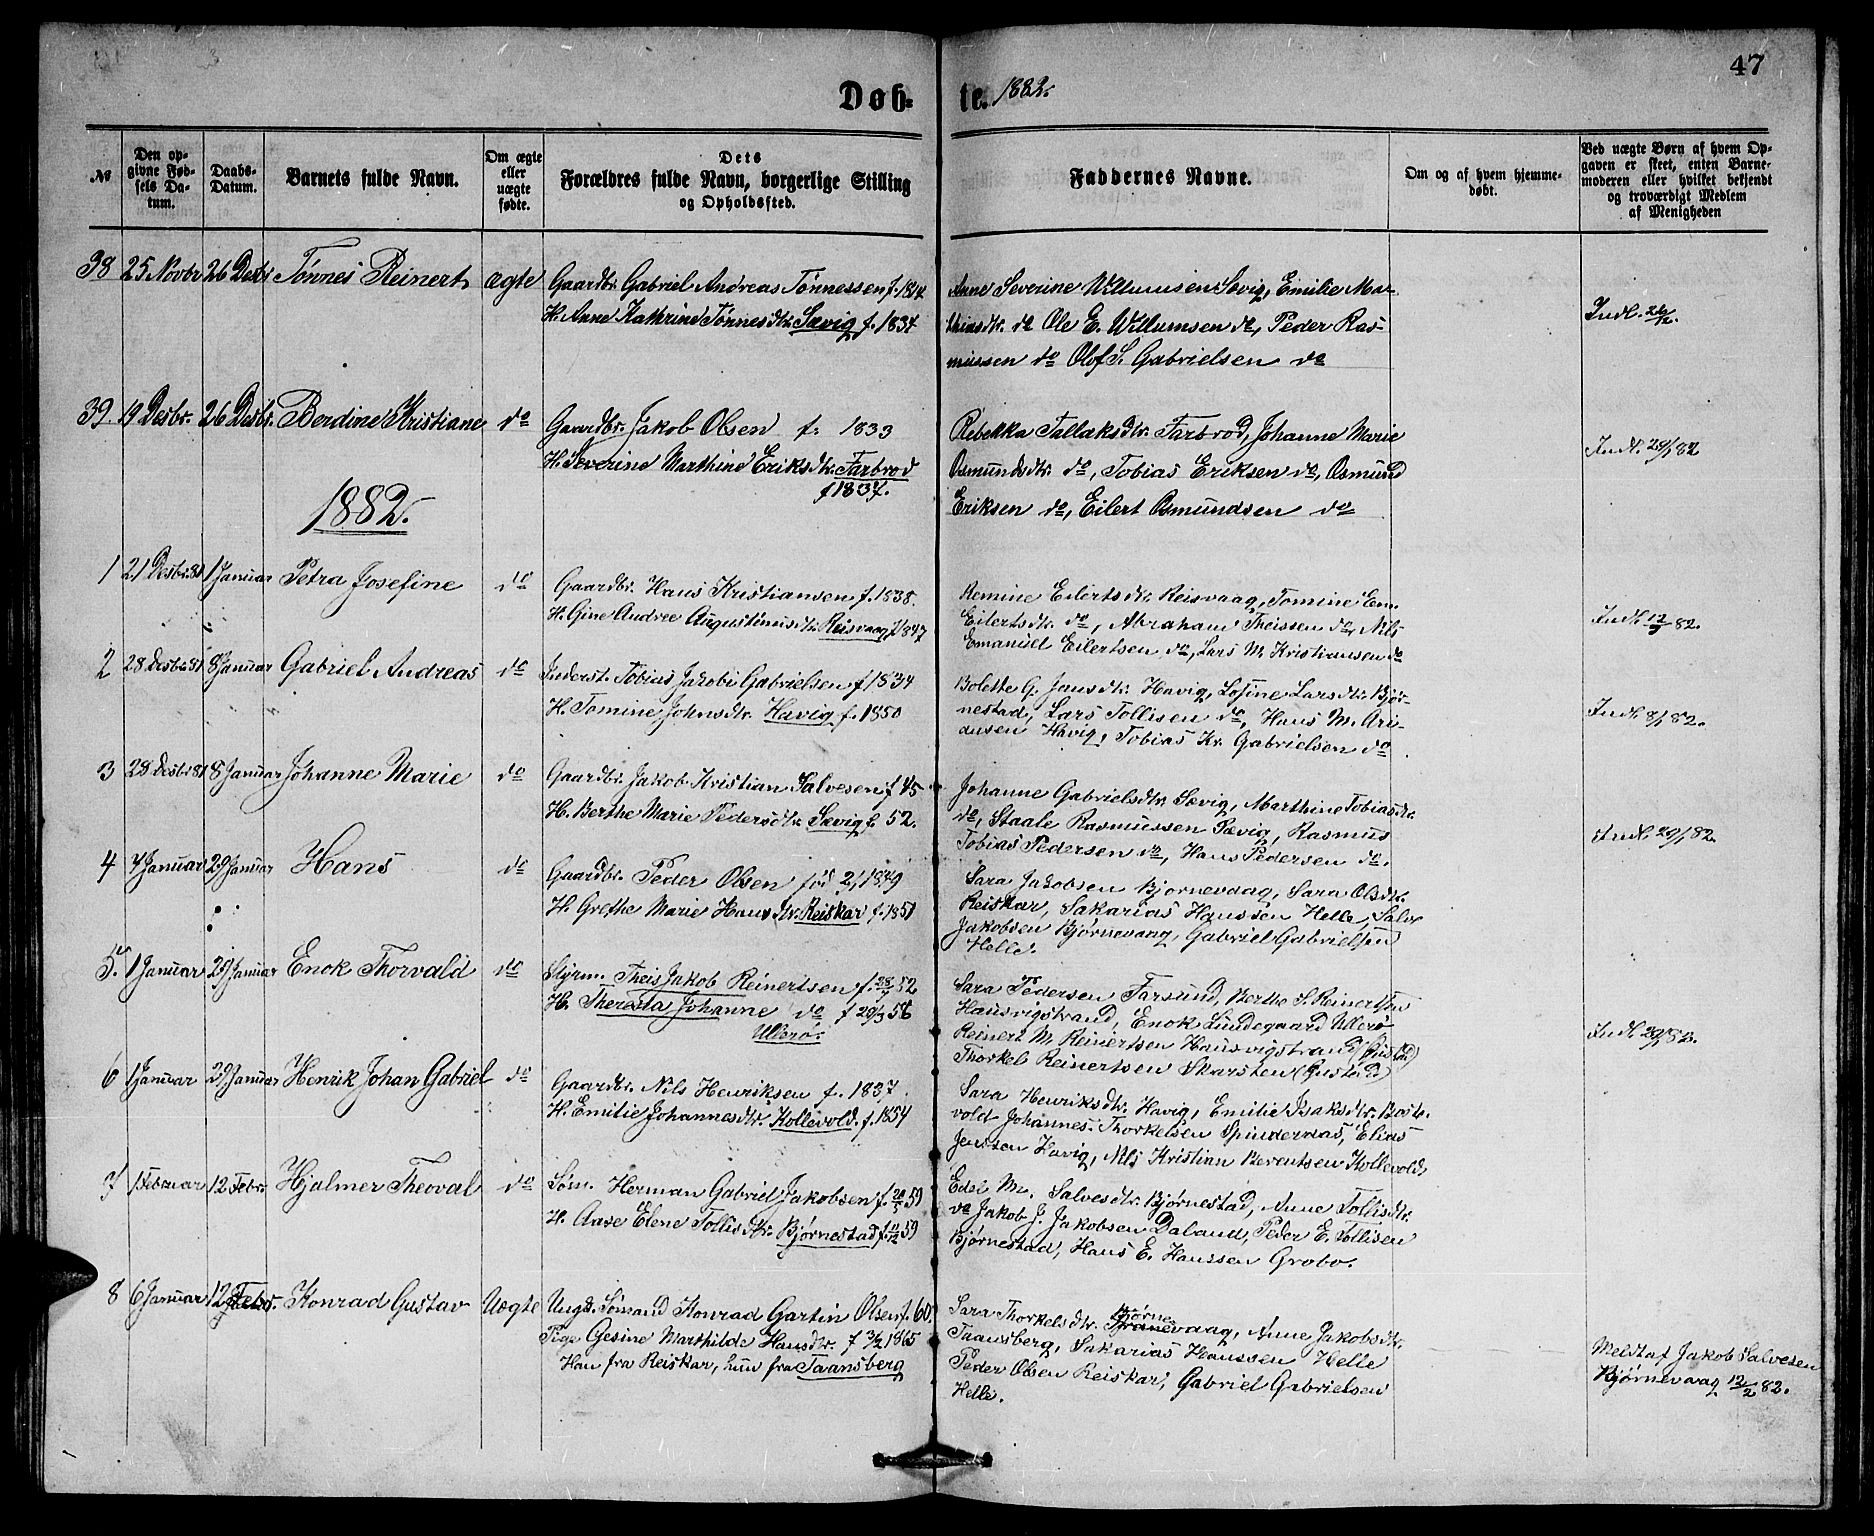 47
Døb- te. 1882.
№
Den op-
givne Fød-
sels Da-
tum.
Daabs-
Datum.
Barnets fulde Navn.
Om ægte
eller
uægte
fødte.
Dets
Forældres fulde Navn, borgerlige Stilling
og Opholdssted.
Faddernes Navne.
Om og af hvem hjemme-
døbt.
Ved uægte Børn af hvem Op-
gaven er skeet, enten Barne-
moderen eller hvilket bekjendt
og troværdigt Medlem
af Menigheden
38 25 Novbr 26 Desbr Tønnes Reinert ægte
Gaardbr. Gabriel Andreas Tønnessen f. 1824
H. Anne Kathrine Tønnesdtr. Sævig f. 1834
Anne Severine Willumsen Sævig, Emilie Ma-
thiasdtr. do Ole E. Willumsen do, Peder Ras-
mussen do Olof S. Gabrielsen do
Indl. 26/12.
39. 19 Desbr. 26 Desbr. Berdine Kristiane do
Gaardbr. Jakob Olsen f. 1833
H. Severine Marthine Eriksdtr. Farbrod
f 1837.
Rebekka Tallaksdtr. Farbrod, Johanne Marie
Osmundsdtr. do, Tobias Eriksen do, Osmund
Eriksen do, Eilert Osmundsen do
Indl. 29/1 82
1882.
1 21 Desbr. 81 1 Januar Petra Josefine do
Gaardbr. Hans Kristiansen f. 1838.
H. Gine Andree Augustinusdtr. Reisvaag f. 1847
Remine Eilertsdtr. Reisvaag, Tomine Em.
Eilertsdtr. do, Abraham Theissen do, Nils
Emanuel Eilertsen do, Lars M. Kristiansen do
Indl. 82.
2 28 Desbr. 81 8 Januar Gabriel Andreas do
Inderst. Tobias Jakobi Gabrielsen f 1834
H. Tomine Johnsdtr. Havig f. 1850
Bolette G. Jansdtr. Havig, Losine Larsdtr. Bjør-
nestad, Lars Tollisen do, Hans M. Ari-
dusen Havig, Tobias Kr. Gabrielsen do
Indl. 8/1 82.
3 28 Desbr 81 8 Januar Johanne Marie do
Gaardbr. Jakob Kristian Salvesen f 45
H. Berthe Marie Pedersdtr. Sævig f. 52.
Johanne Gabrielsdtr. Sævig, Marthine Tobiasdtr.
do, Staale Rasmussen Sævig, Rasmus
Tobias Pedersen do, Hans Pedersen do.
Indl. 29/1 82.
4 4 Januar 29 Januar Hans do
Gaardbr. Peder Olsen fød 1849
H. Grethe Marie Hansdtr. Reiskar f. 1851
Sara Jakobsen Bjørnevaag, Sara Olsdtr.
Reiskar, Sakarias Hanssen Helle, Salv
Jakobsen Bjørnevaag, Gabriel Gabrielsen
Helle.
5. 1 Januar 29 Januar Enok Thorvald do
Styrm. Theis Jakob Reinertsen f. 52
H. Theresia Johanne do f 29/3 56
Ullerø.
Sara Pedersen Farsund, Berthe S. Reinertsen
Hausvigstrand, Enok Lindegaard Ullerø
Reinert M. Reinertsen Hausvigstrand (Gustad)
Thorkel Reinertsen Skarsten (Gustad)
Indl. 29/1 82.
6 1 Januar 29 Januar Henrik Johan Gabriel do
Gaardbr. Nils Henriksen f. 1837.
H. Emilie Johannesdtr. Kollevold. f. 1854
Sara Henriksdtr. Havig, Emilie Isaksdtr. Boste-
vold Johannes Thorkelsen Spindernæs, Elias
Jenssen Havig, Nils Kristian Berentsen Kollevold.
7 1 Februar 12 Febr. Hjalmer Theoval do
Søm. Herman Gabriel Jakobsen f. 20/5 59
H. Aase Elene Tollisdtr. Bjørnestad f. 11/12 59
Edel M. Salvesdtr. Bjørnestad, Anne Tollisdtr.
do Jakob J. Jakobsen Daland, Peder E. Tollisen
Bjørnestad, Hans E. Hanssen Grobo.
8 6 Januar 12 Febr. Konrad Gustav Uægte
Ungk. Sømand Konrad Gartin Olsen f. 60.
Pige Gesine Marthilde Hansdtr. f 3/2 1865
Han fra Reiskar, hun fra Taansberg
Sara Thorkelsdtr. Bjørnevaag, Anne Jakobsdtr.
Taansberg, Sakarias Hanssen Helle
Peder Olsen Reiskar, Gabriel Gabrielsen
Helle.
Meldt af Jakob Salvesen
Bjørnevaag 12/2 82.